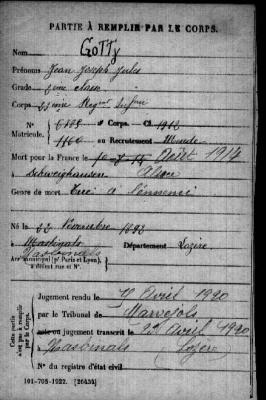 PARTIE À REMPLIR PAR LE CORPS.
Nom GOTTY
Prénoms Jean Joseph Jules
Grade 2ème classe
Corps Régt
N° Matricule. au Corps. — Cl. 1912
1160 au Recrutement Mende
Mort pour la France le Août 1914
à Schweighausen Alsace
Genre de mort Tué à l'ennemi
Né le 22 Novembre
à Nasbinals Département Lozère
Arr municipal (p Paris et Lyon), à défaut rue et N°.
Cette partie n'est pas à remplir par le Corps.
Jugement rendu le Avril 1920
par le Tribunal de Marvejols
jugement transcrit le Avril 1920
à Nasbinals Lozère
N° du registre d'état civil
101-708-1922. [26434]